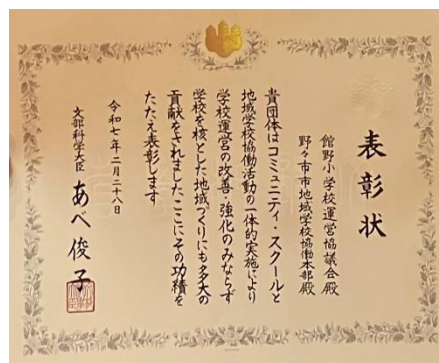 表彰状
館野小学校運営協議会殿
野々市市地域学校協働本部殿
貴団体はコミュニティ・スクールと
地域学校協働活動の一体的実施により
学校運営の改善・強化のみならず
学校を核とした地域づくりにも多大の
貢献をされましたここにその功績を
たたえ表彰します
令和七年二月二十八日
文部科学大臣 あべ俊子